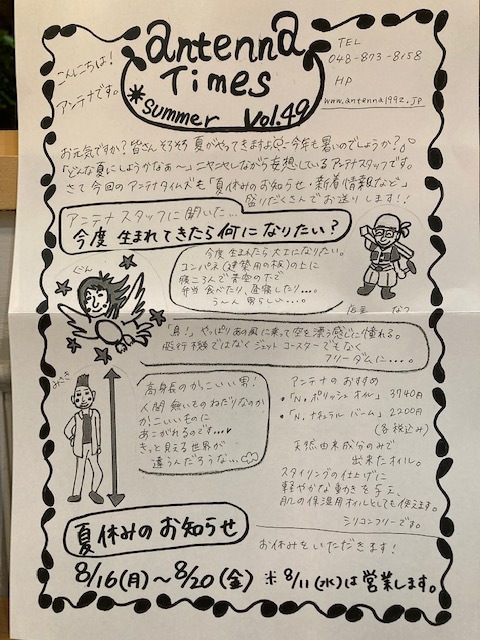 antenna
Times
*summer Vol.49
TEL
048-873-8158
HP
www.antenna1992.jp
こんにちは！
アンテナです。
お元気ですか？皆さんそろそろ夏がやってきますよ 今年も暑いのでしょうか？
「どんな夏にしようかなぁ〜」ニヤニヤしながら妄想しているアンテナスタッフです。
さて今回のアンテナタイムズも「夏休みのお知らせ・新着情報など」
盛りだくさんでお送りします！！
アンテナスタッフに聞いた…
今度生まれてきたら何になりたい？
今度生まれたら大工になりたい。
コンパネ(建築用の板)の上に
寝ころんで青空の下で
弁当食べたり、昼寝したり…。
う〜ん男らしい…。
店主 なつ
じん
「鳥！」やっぱりあの風に乗って空を漂う感じに憧れる。
飛行機ではなくジェットコースターでもなく
フリーダムに…。
みべき
高身長のかっこいい男！
人間無いものねだりなのか
かっこいいものに
あこがれるのです…♥
きっと見える世界が
違うんだろうな…
アンテナのおすすめ
・「N.ポリッシュオイル」 3740円
・「N.ナチュラルバーム」 2200円
(各税込み)
天然由来成分のみで
出来たオイル。
スタイリングの仕上げに
軽やかな動きを与え、
肌の保湿用オイルとしても使えます。
シリコンフリーです。
夏休みのお知らせ
お休みをいただきます！
8/16(月)〜8/20(金) ※8/11(水)は営業します。